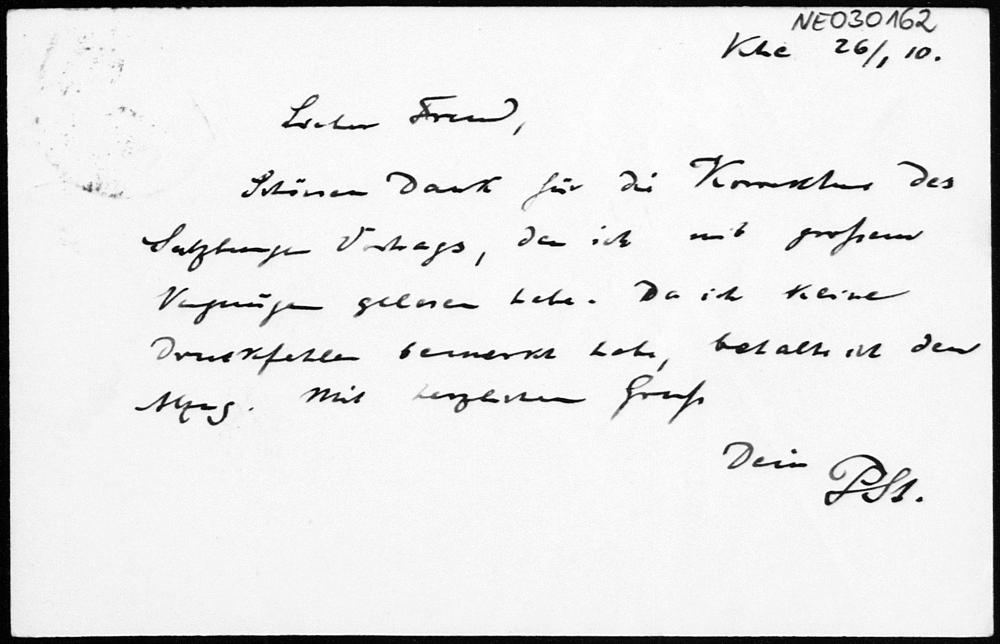 NE030162
Khe 26/1 10.
Lieber Freund,
Schönen Dank für die Korrektur des
Salzburger Vortrags, den ich mit großem
Vergnügen gelesen habe. Da ich keine
Druckfehler bemerkt habe, behalte ich den
Abzug. Mit herzlichem Gruß
Dein PSt.